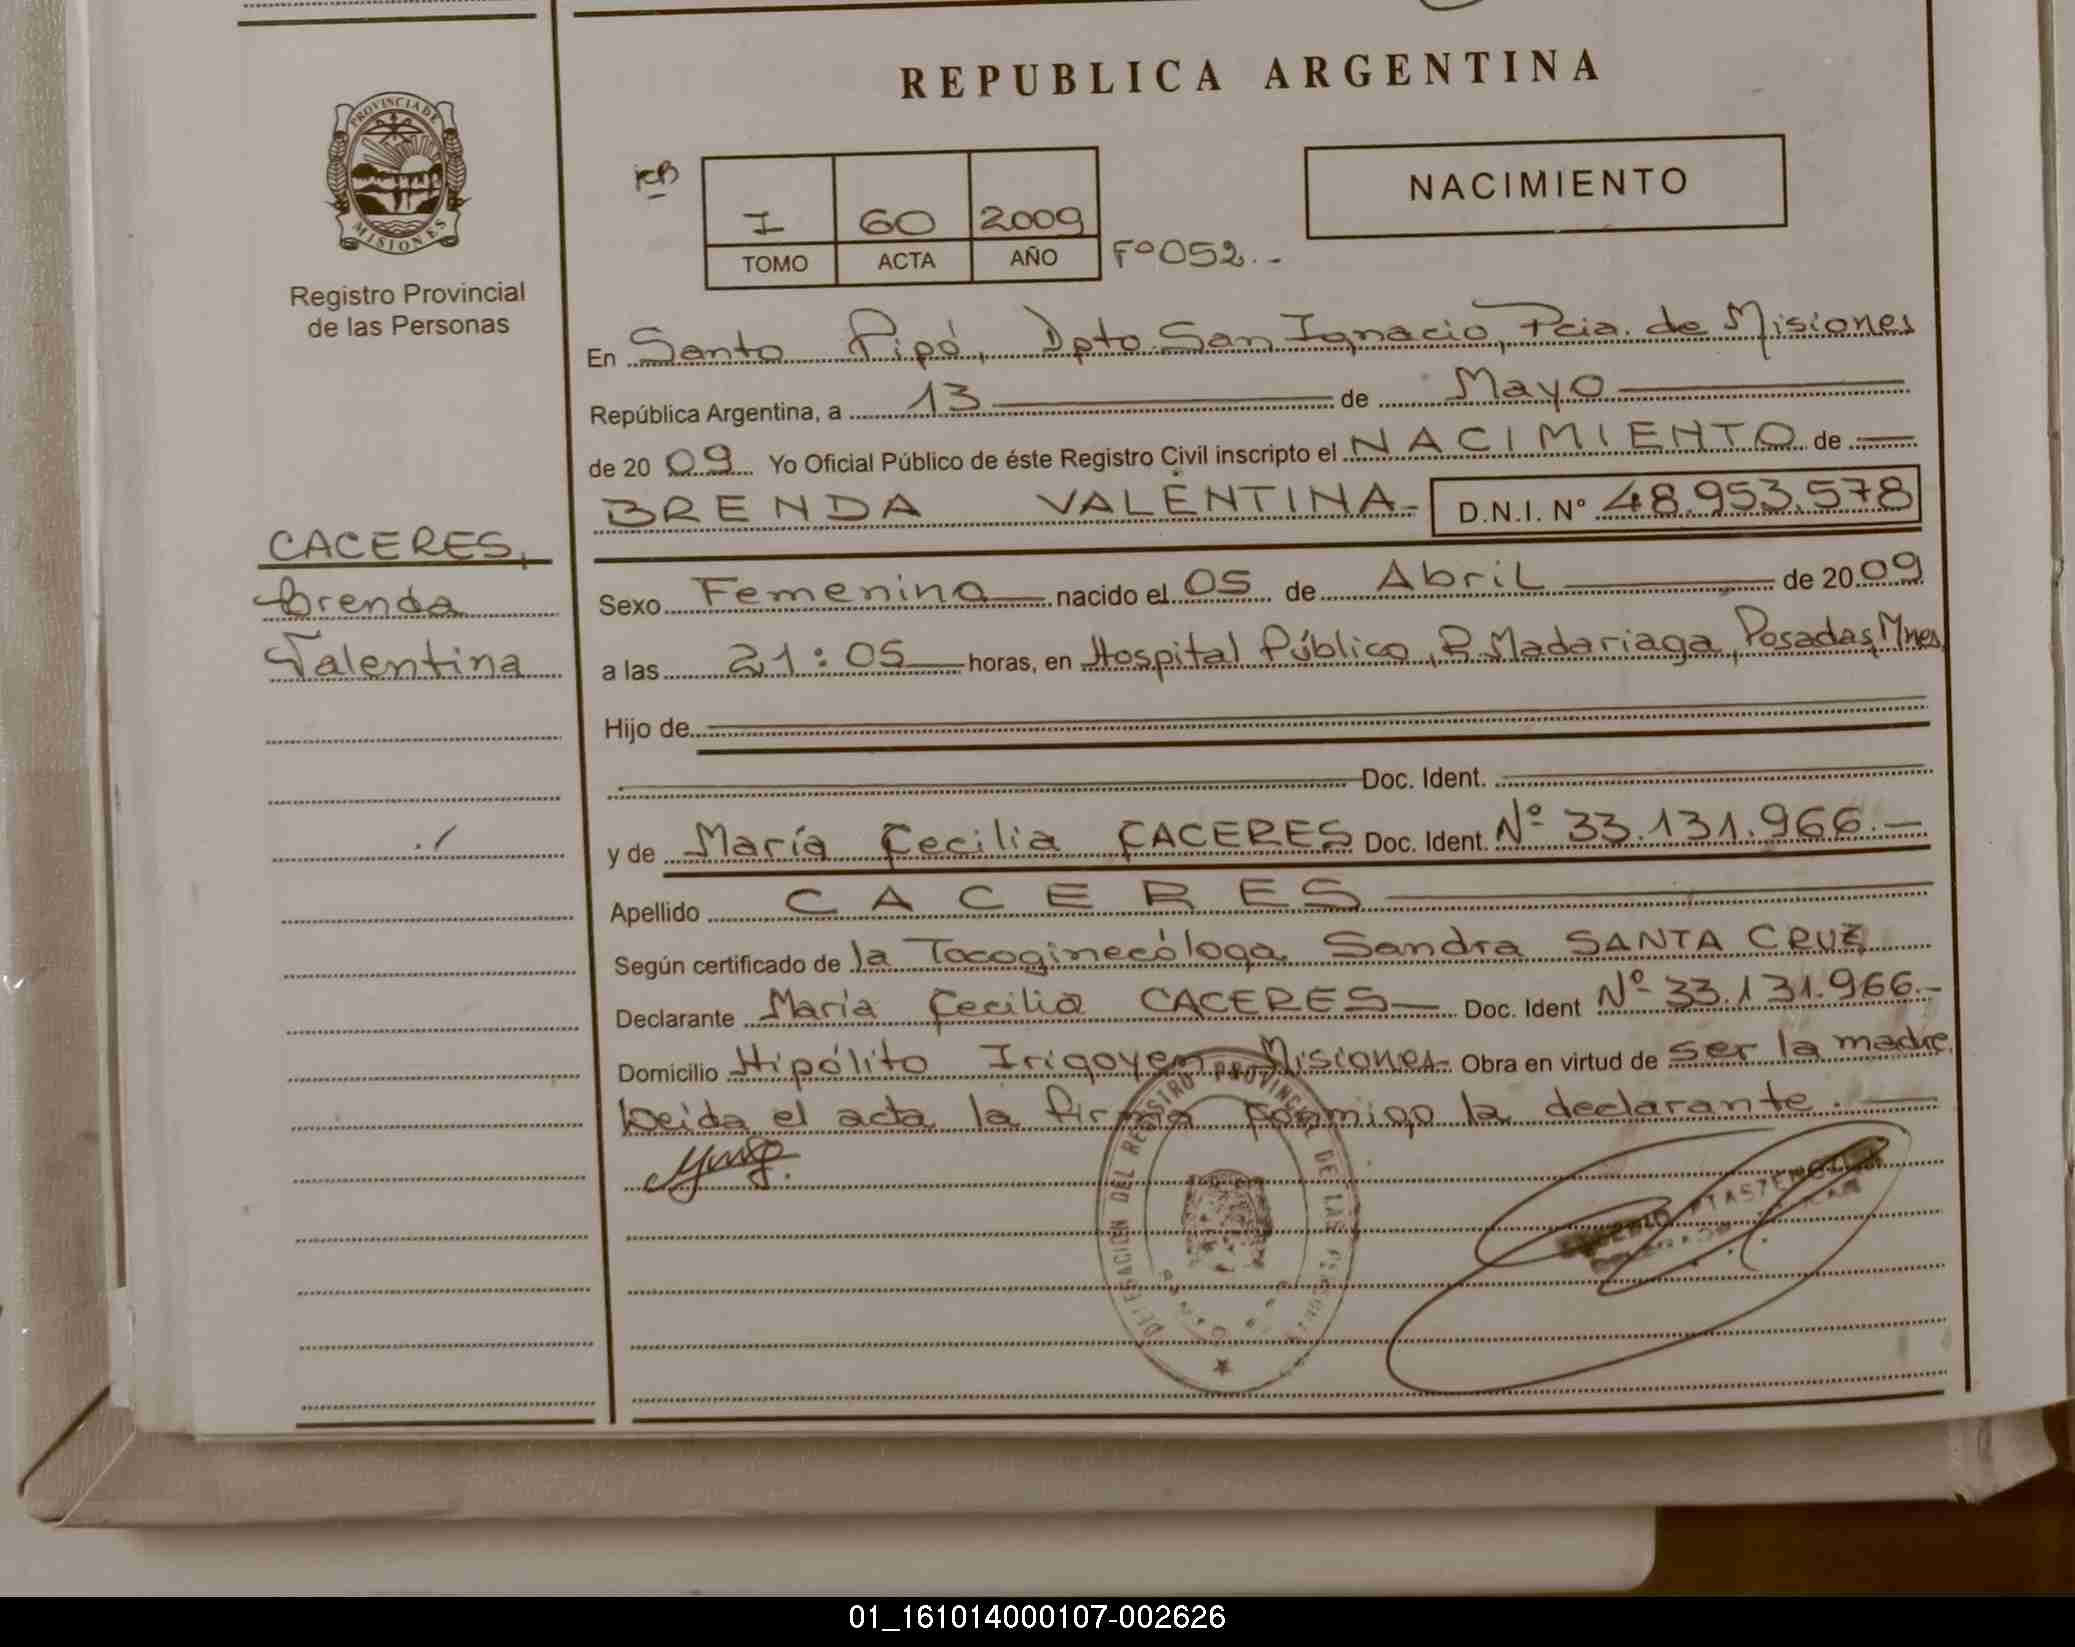 REPUBLICA ARGENTINA
PROVINCIA DE
MISIONES
Registro Provincial
de las Personas
I 60 2009
TOMO ACTA AÑO
Fº052.-
NACIMIENTO
En Santo Pipó, Dpto San Ignacio, Pcia. de Misiones
República Argentina, a 13 de Mayo
de 20 09 Yo Oficial Público de éste Registro Civil inscripto el NACIMIENTO de
BRENDA VALENTINA- D.N.I. Nº 48.953.578
CACERES,
Brenda
Valentina
Sexo Femenino nacido el 05 de Abril de 20 09
a las 21:05 horas, en Hospital Público, R. Madariaga, Posadas, Mnes,
Hijo de
Doc. Ident.
y de María Cecilia CACERES Doc. Ident. Nº 33.131.966.-
Apellido CACERES
Según certificado de la Tocoginecóloga Sandra SANTA CRUZ
Declarante María Cecilia CACERES Doc. Ident Nº 33.131.966.-
Domicilio Hipólito Irigoyen Misiones- Obra en virtud de ser la madre
Leida el acta la firma conmigo la declarante.
DELEGACION DEL REGISTRO PROVINCIAL DE LAS PERSONAS
01_161014000107-002626